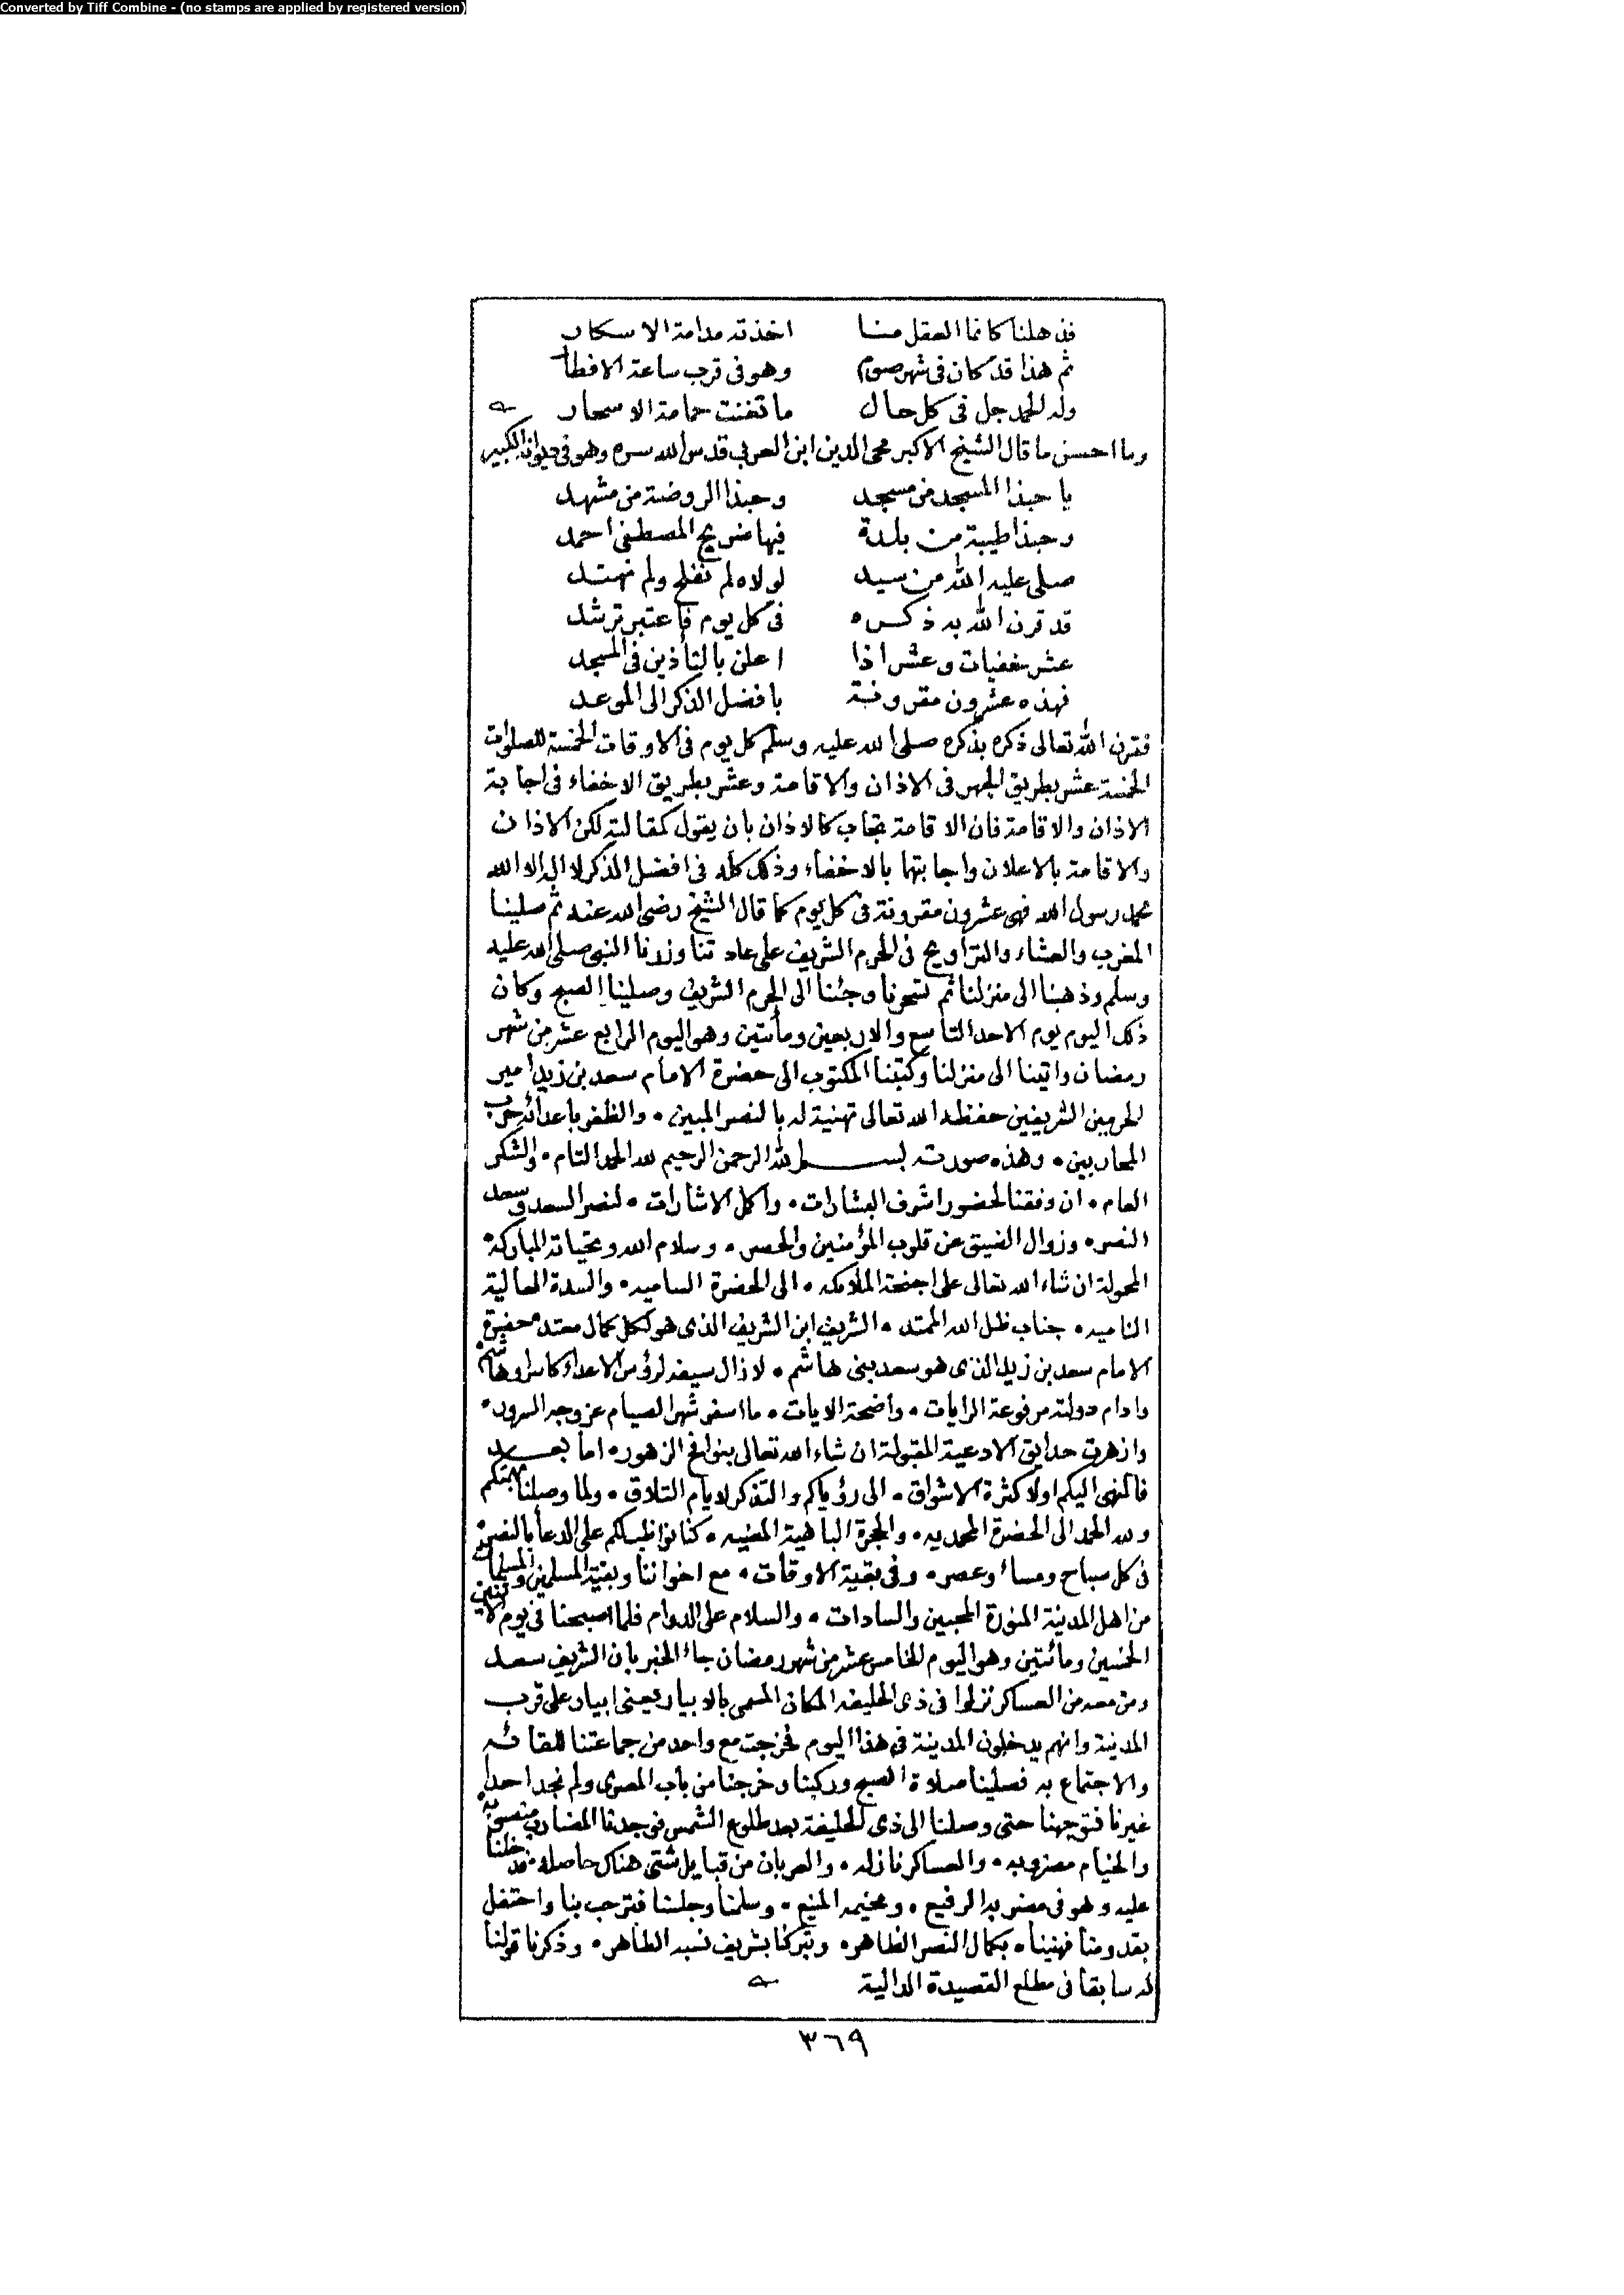 Converted by Tiff Combine - (no stamps are applied by registered version)
فذهلنا كانما العقل منا اخذته مدامة الاسكار
ثم هذا قد كان فى شهر صوم وهو فى قرب ساعة الافطار
وله الحمد جل فى كل حال ما تغنت حمامة الاسحار
وما احسن ما قال الشيخ الاكبر محى الدين ابن العربى قدس الله سره وهو فى ديوانه الكبير
يا حبذا المسجد من مسجد وحبذا الروضة من مشهد
وحبذا طيبة من بلدة فيها ضريح المصطفى احمد
صلى عليه الله من سيد لولاه لم نفلح ولم نهتد
قد قرن الله به ذكره فى كل يوم فاعتبر ترشد
عشر خفيات وعشر اذا اعلن بالتأذين فى المسجد
فهذه عشرون مقرونة بافضل الذكر الى الموعد
فقرن الله تعالى ذكره بذكره صلى الله عليه وسلم كل يوم فى الاوقات الخمسة للصلوات
الخمسة عشر بطريق الجهر فى الاذان والاقامة وعشر بطريق الاخفاء فى اجابة
الاذان والاقامة فان الاقامة تجاب كالاذان بان يقول كمقالته لكن الاذان
والاقامة بالاعلان واجابتها بالاخفاء وذلك كله فى افضل الذكر لا اله الا الله
محمد رسول الله فهى عشرون مقرونة فى كل يوم كما قال الشيخ رضى الله عنه ثم صلينا
المغرب والعشاء والتراويح فى الحرم الشريف على عادتنا وزرنا النبى صلى الله عليه
وسلم وذهبنا الى منزلنا ثم تسحرنا وجئنا الى الحرم الشريف وصلينا الصبح وكان
ذلك اليوم يوم الاحد التاسع والاربعين ومأتين وهو اليوم الرابع عشر من شهر
رمضان واتينا الى منزلنا وكتبنا المكتوب الى حضرة الامام سعد بن زيد امير
الحرمين الشريفين حفظه الله تعالى تهنية له بالنصر المبين • والظفر باعدائه حرب
المحاربين • وهذه صورته بسم الله الرحمن الرحيم لله الحمد التام • والشكر
العام • ان وفقنا لحضور اشرف البشارات • واكمل الاشارات • لنصر السعد وسعد
النصر • وزوال الضيق عن قلوب المؤمنين والحصر • وسلام الله وتحياته المباركة
المحمولة ان شاء الله تعالى على اجنحة الملائكه • الى الحضرة الساميه • والسدة العالية
الناميه • جناب ظل الله الممتد • الشريف ابن الشريف الذى هو لكل كمال معتد حضرة
الامام سعد بن زيد الذى هو سعد بنى هاشم • لازال سيفه لرؤس الاعداء كاسرا وهاشم
وادام دولته مرفوعة الرايات • واضحة الايات • ما اسفر شهر الصيام عن وجه السرور •
وازهرت حدايق الادعية المقبولة ان شاء الله تعالى بنوافح الزهور • اما بعد
فالمنهى اليكم اولا كثرة الاشواق • الى رؤياكم والتذكر لايام التلاق • ولما وصلنا بهمتكم
ولله الحمد الى الحضرة المحمديه • والحجرة الباهية المضيه • كنا نواظب لكم على الدعا بالنصر
فى كل صباح ومساء وعصر • وفى بقية الاوقات • مع اخواننا وبقية المسلمين والمسلمات
من اهل المدينة المنورة المحبين والسادات • والسلام على الدوام فلما اصبحنا فى يوم الاثنين
الخمسين ومائتين وهو اليوم الخامس عشر من شهر رمضان جاء الخبر بان الشريف سعد
ومن معه من العساكر نزلوا فى ذى الحليفه المكان المسمى بالابيار يعنى ابيار على قرب
المدينة وانهم يدخلون المدينة فى هذا اليوم فخرجت مع واحد من جماعتنا للقائه
والاجتماع به فصلينا صلاة الصبح وركبنا وخرجنا من باب المصرى ولم نجد احدا
غيرنا فتوجهنا حتى وصلنا الى ذى الحليفة بعد طلوع الشمس فوجدنا المضارب منصوبة
والخيام مضروبه • والعساكر نازله • والعربان من قبايل شتى هناك حاصله فدخلنا
عليه وهو فى مضربه الرفيع • ومخيمه المنيع • وسلمنا وجلسنا فترحب بنا واحتفل
بقدومنا فهنيناه بكمال النصر الظاهر • وتبركنا بشريف نسبه الطاهر • وذكرنا قولنا
له سابقا فى مطلع القصيدة الدالية
٣٦٩